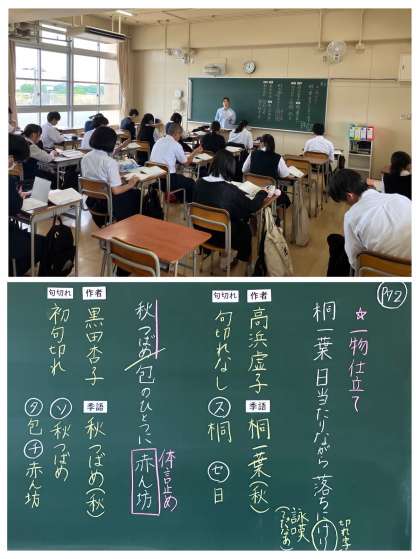 P72
☆一物仕立て
桐一葉 日当たりながら 落ちにけり
切れ字
詠嘆
作者 高浜虚子
季語 桐一葉(秋)
句切れ 句切れなし
ス 桐 セ 日
秋つばめ 包のひとつに 赤ん坊
体言止め
作者 黒田杏子
季語 秋つばめ(秋)
句切れ 初句切れ
ソ 秋つばめ
タ 包 チ 赤ん坊